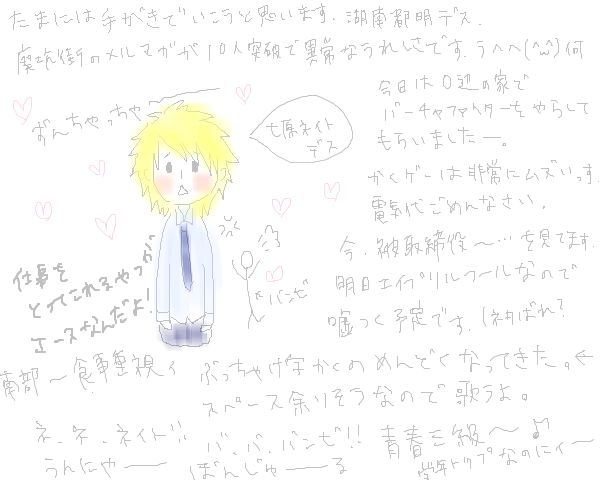 たまには手がきでいこうと思います。湖南都明デス。
廃坑街のメルマガが10人突破で異常なうれしさです。うへへ(^ω^)何
ずんちゃっちゃー
七原ネイト
デス
今日は〇辺の家で
バーチャファイターをやらして
もらいましたー。
かくゲーは非常にムズいっす。
電気代ごめんなさい。
今、被取締役〜…を見てます。
明日エイプリルフールなので
嘘つく予定です。(ネタばれ?
仕事を
とってこれるやつが
エースなんだよ!
バンゼ
南部〜食事重視イ
ぶっちゃけ字かくのめんどくなってきた。←
スペース余りそうなので歌うよ。
ネ、ネ、ネイト!!
バ、バ、バンゼ!!
青春三級〜♪
うんにゃー
ぼんじゅーる
学年トップなのにィ〜